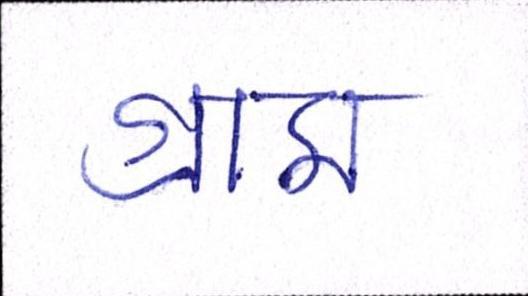 গ্রাম